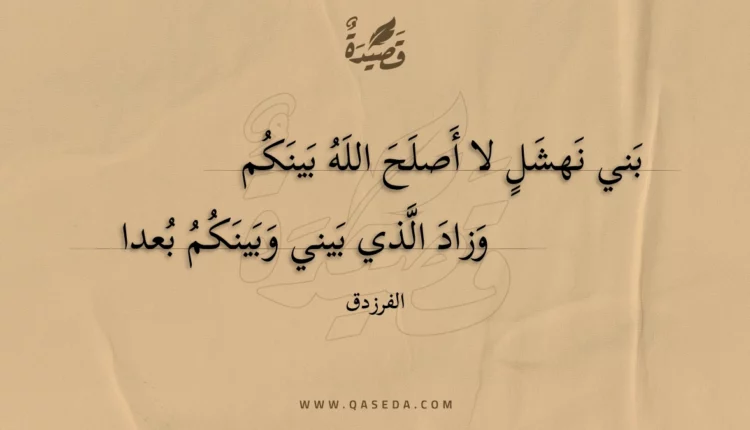 قَصِيْدَةٌ
بَني نَهشَلٍ لا أَصلَحَ اللَهُ بَينَكُم
وَزادَ الَّذي بَيني وَبَينَكُمُ بُعدا
الفرزدق
WWW.QASEDA.COM